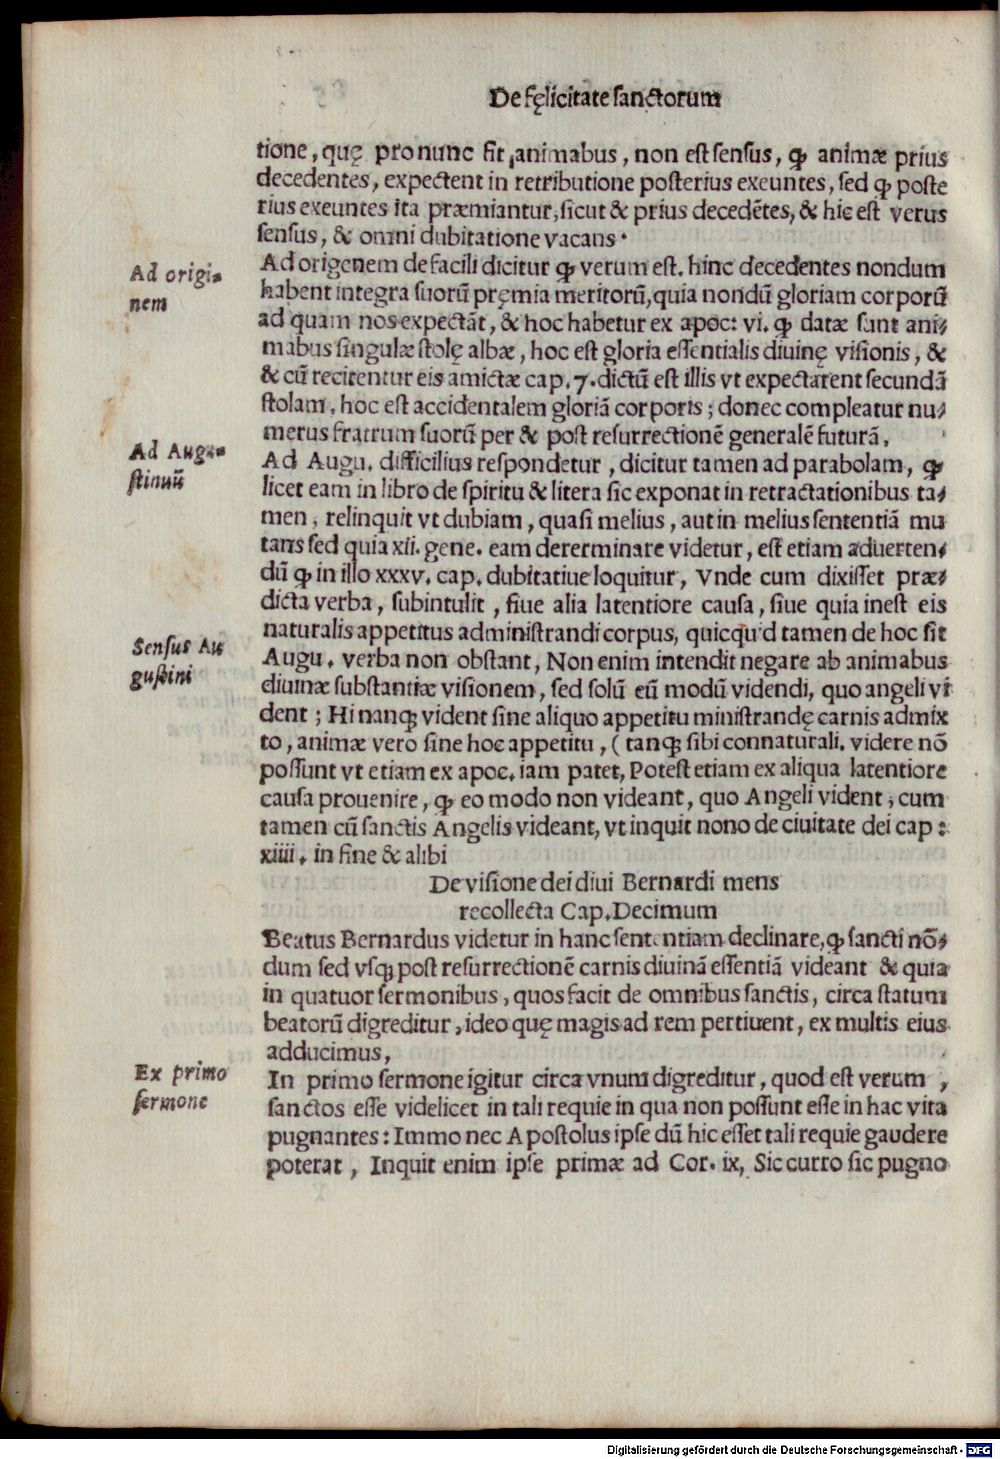 De fęlicitate sanctorum
tione, quę pro nunc fit, animabus, non est sensus, ꝙ animæ prius
decedentes, expectent in retributione posterius exeuntes, sed ꝙ poste
rius exeuntes ita præmiantur, sicut & prius decedētes, & hic est verus
sensus, & omni dubitatione vacans.
Ad origi=
nem
Ad origenem de facili dicitur ꝙ verum est. hinc decedentes nondum
habent integra suorū pręmia meritorū, quia nondū gloriam corporū
ad quam nos expectāt, & hoc habetur ex apoc: vi. ꝙ datæ sunt ani-
mabus singulæ stolę albæ, hoc est gloria essentialis diuinę visionis, &
& cū recitentur eis amictæ cap. 7. dictū est illis vt expectarent secundā
stolam, hoc est accidentalem gloriā corporis; donec compleatur nu-
merus fratrum suorū per & post resurrectionē generalē futurā,
Ad Augu=
stinuū
Ad Augu. difficilius respondetur, dicitur tamen ad parabolam, ꝙ
licet eam in libro de spiritu & litera sic exponat in retractationibus ta-
men, relinquit vt dubiam, quasi melius, aut in melius sententiā mu
tans sed quia xii. gene. eam dererminare videtur, est etiam aduerten-
dū ꝙ in illo xxxv. cap. dubitatiue loquitur, Vnde cum dixisset præ-
dicta verba, subintulit, siue alia latentiore causa, siue quia inest eis
naturalis appetitus administrandi corpus, quicquid tamen de hoc sit
Sensus Au
gustini
Augu. verba non obstant, Non enim intendit negare ab animabus
diuinæ substantiæ visionem, sed solū eū modū videndi, quo angeli vi
dent; Hi nanꝗ vident sine aliquo appetitu ministrandę carnis admix
to, animæ vero sine hoc appetitu, (tanꝗ sibi connaturali. videre nō
possunt vt etiam ex apoc. iam patet, Potest etiam ex aliqua latentiore
causa prouenire, ꝙ eo modo non videant, quo Angeli vident, cum
tamen cū sanctis Angelis videant, vt inquit nono de ciuitate dei cap:
xiiii. in fine & alibi
De visione dei diui Bernardi mens
recollecta Cap. Decimum
Beatus Bernardus videtur in hanc sententiam declinare, ꝙ sancti nō-
dum sed vsꝗ post resurrectionē carnis diuinā essentiā videant & quia
in quatuor sermonibus, quos facit de omnibus sanctis, circa statum
beatorū digreditur, ideo quę magis ad rem pertiuent, ex multis eius
adducimus,
Ex primo
sermone
In primo sermone igitur circa vnum digreditur, quod est verum,
sanctos esse videlicet in tali requie in qua non possunt esse in hac vita
pugnantes: Immo nec Apostolus ipse dū hic esset tali requie gaudere
poterat, Inquit enim ipse primæ ad Cor. ix, Sic curro sic pugno
Digitalisierung gefördert durch die Deutsche Forschungsgemeinschaft - DFG